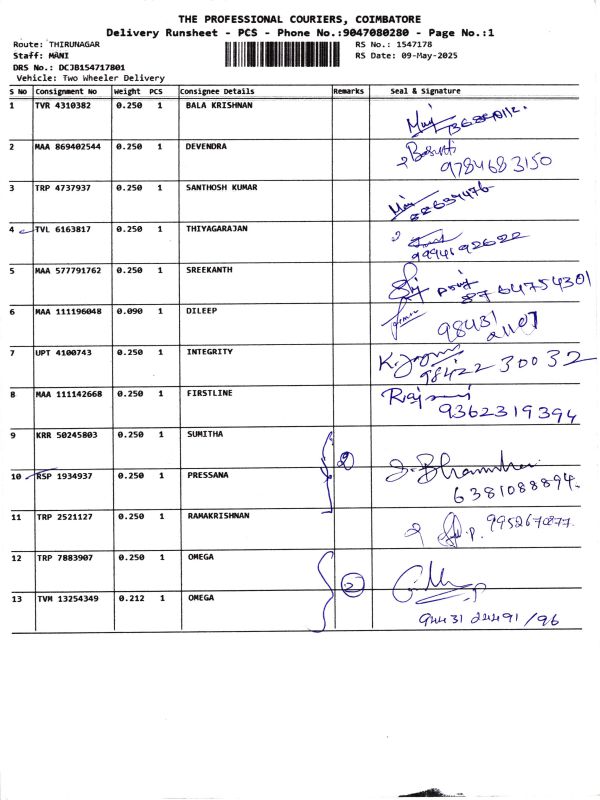 THE PROFESSIONAL COURIERS, COIMBATORE
Delivery Runsheet - PCS - Phone No.:9047080280 - Page No.:1
Route: THIRUNAGAR RS No.: 1547178
Staff: MANI RS Date: 09-May-2025
DRS No.: DCJB154717801
Vehicle: Two Wheeler Delivery
S No Consignment No Weight PCS Consignee Details Remarks Seal & Signature
1 TVR 4310382 0.250 1 BALA KRISHNAN
2 MAA 869402544 0.250 1 DEVENDRA
9784683150
3 TRP 4737937 0.250 1 SANTHOSH KUMAR
4 TVL 6163817 0.250 1 THIYAGARAJAN
9994192622
5 MAA 577791762 0.250 1 SREEKANTH
8764754301
6 MAA 111196048 0.090 1 DILEEP
98431
21107
7 UPT 4100743 0.250 1 INTEGRITY
98422 30032
8 MAA 111142668 0.250 1 FIRSTLINE
9362319394
9 KRR 50245803 0.250 1 SUMITHA
2
10 RSP 1934937 0.250 1 PRESSANA
6381088894.
11 TRP 2521127 0.250 1 RAMAKRISHNAN
12 TRP 7883907 0.250 1 OMEGA
13 TVM 13254349 0.212 1 OMEGA
94431 24491/96